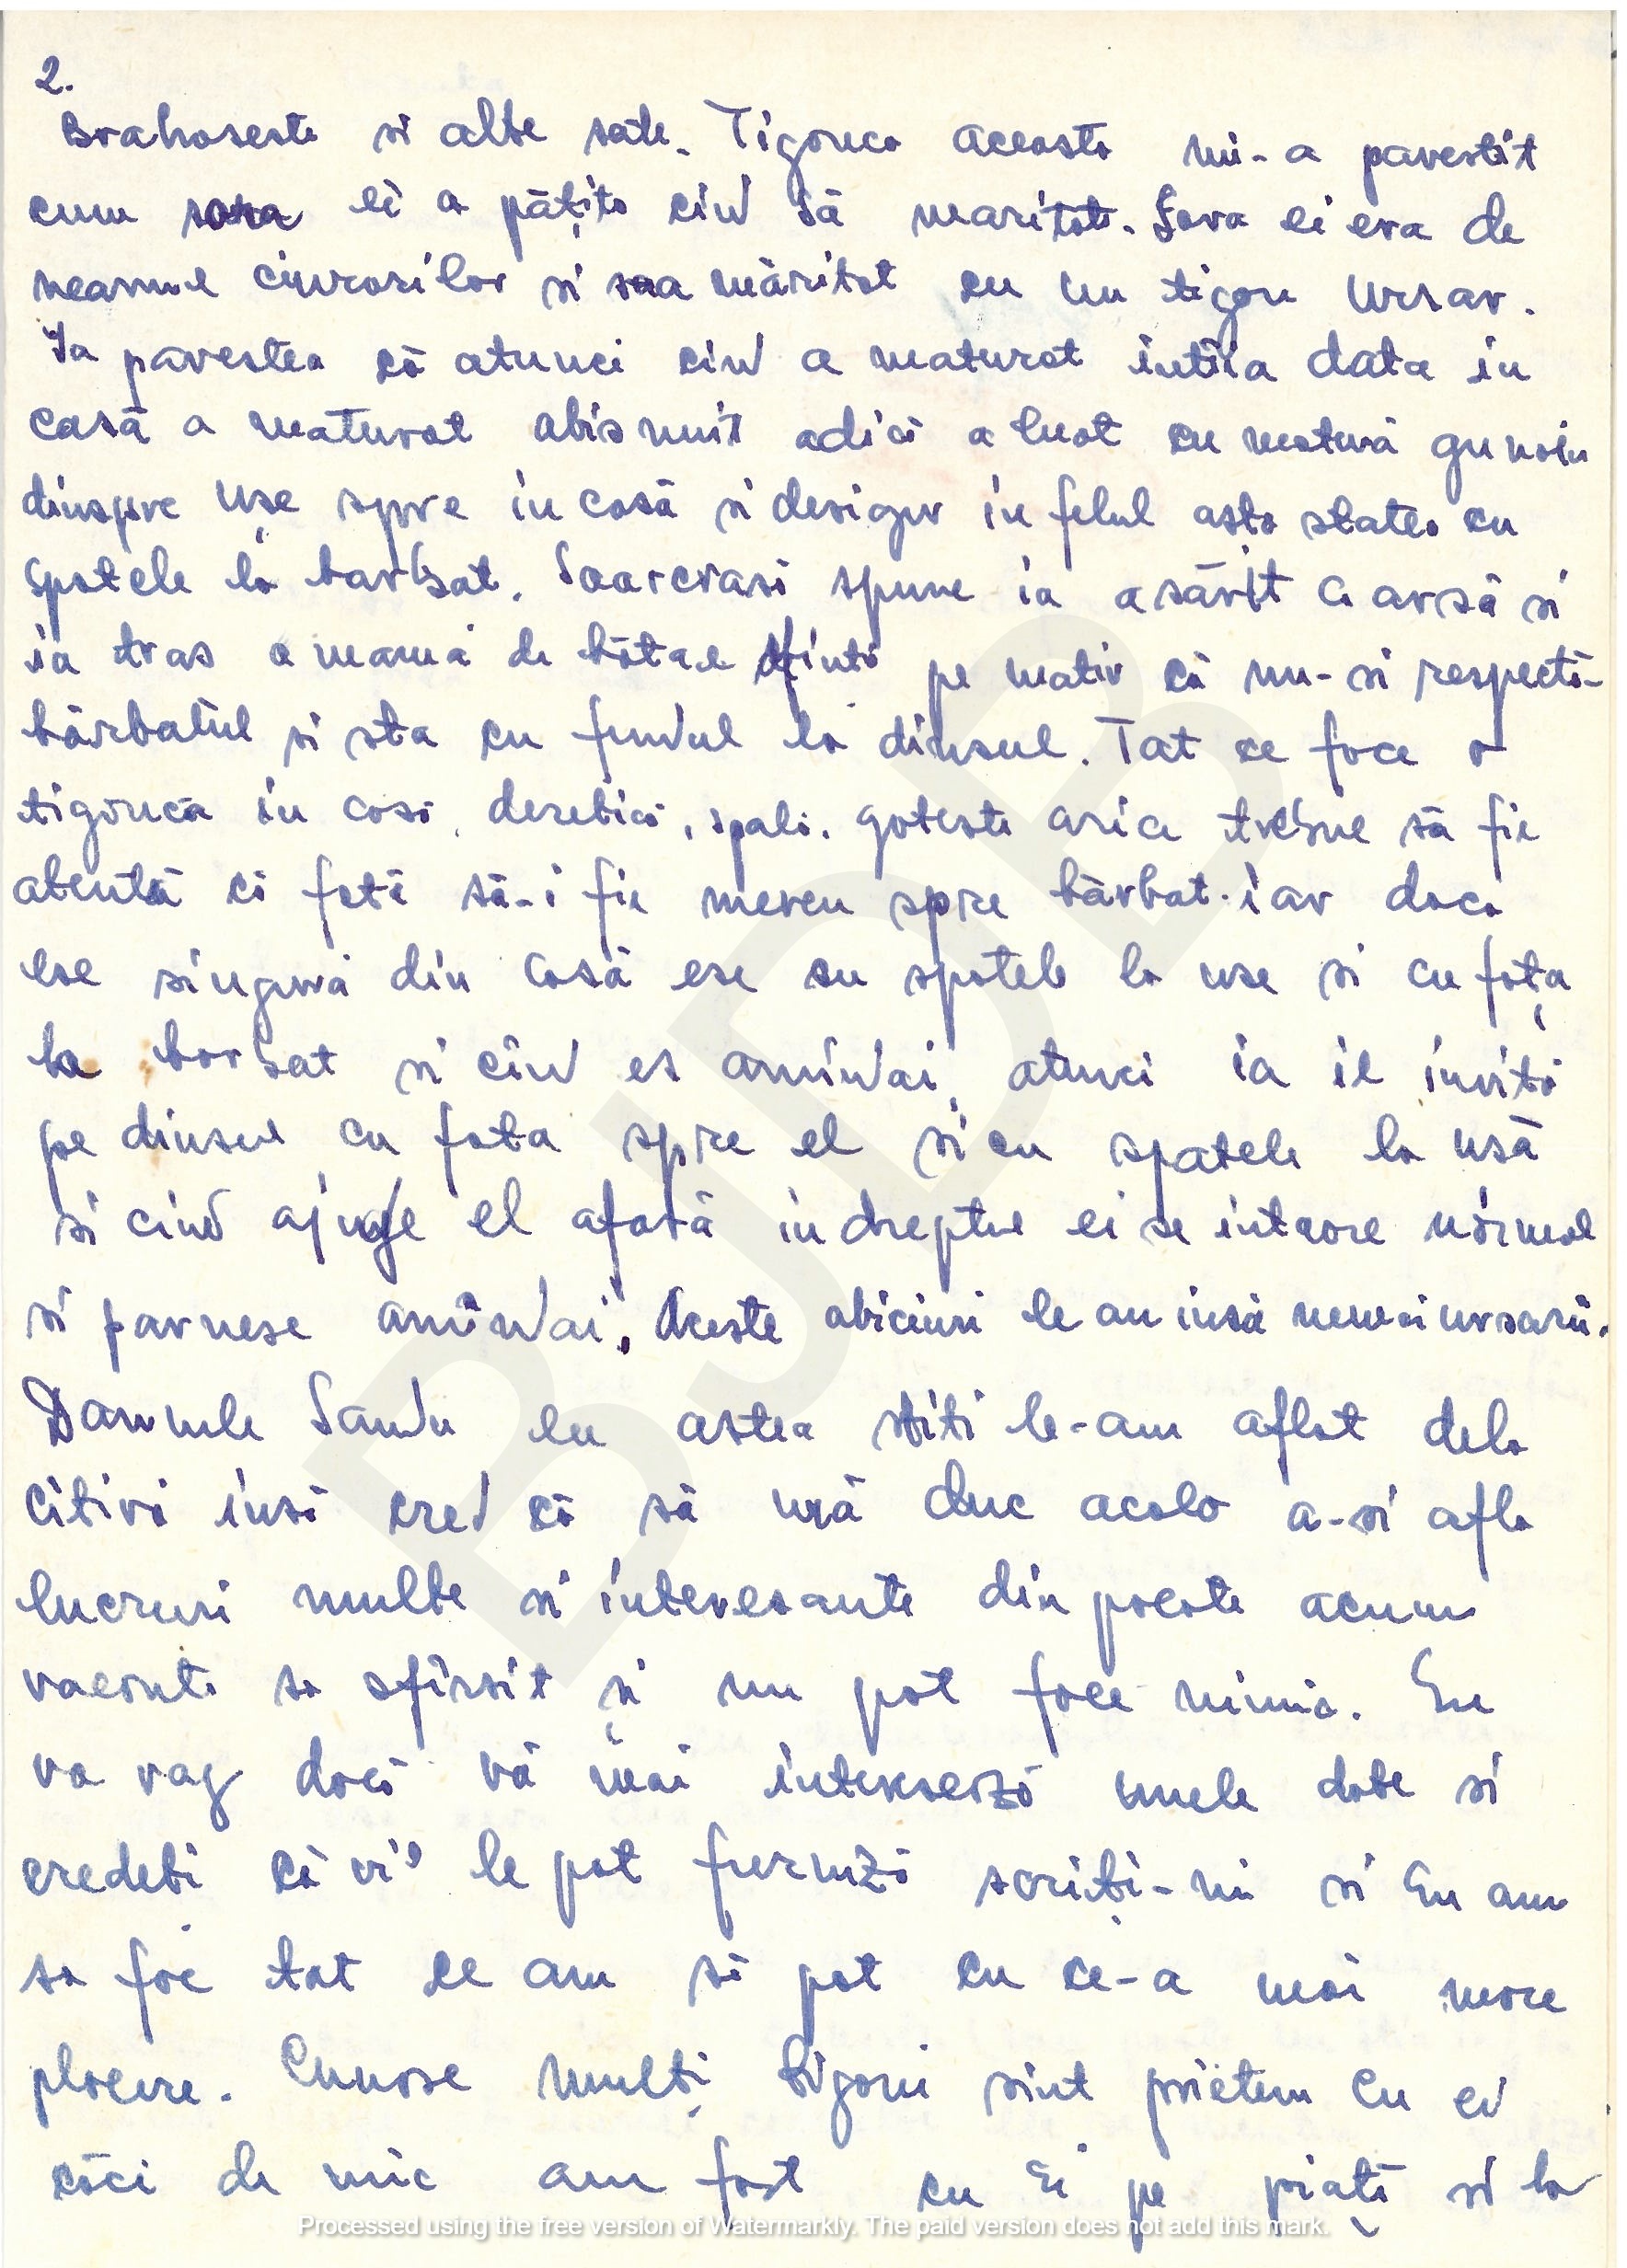 2.
Brahosesti si alte sate. Tiganca aceasta mi-a povestit
cum sora ei a pățito cind să maritat. Sora ei era de
neamul ciurarilor si sa măritat cu un tigan Ursar.
Ia povestea că atunci cind a maturat intiia data in
casă a maturat obisnuit adică a luat cu matură gunoiu
dinspre use spre in casă si desigur in felul asta statea cu
spatele la barbat. Soacrasă spune ia a sărit ca arsă si
ia tras o mamă de bătae sfintă pe motiv că nu-si respectă
bărbatul si sta cu fundul la dinsul. Tot ce face o
tigancă in casă, deretică, spală, gateste orice trebue să fie
atentă că fată să-i fie mereu spre bărbat. iar daca
ese singură din casă ese cu spatele la use si cu fața
la barbat si cind es amindoi, atunci ia il invită
pe dinsul cu fata spre el si cu spatele la usă
si cind ajuge el afară in dreptul ei se intoare normal
si pornesc amîndoi. Aceste obiciuri le au insă numai ursarii.
Domnule Sandu eu astea stiti le-am aflat dela
citiva insă cred că să mă duc acolo a-si afla
lucruri multe si interesante din pacate acum
vacanta sa sfîrsit si nu pot face nimic. Eu
va rog dacă vă mai intereseză unele date si
credeti că vi le pot furniză scrieti-mi si Eu am
sa fac tot ce am si pot cu ce-a mai mare
placere. Cunosc multi tigani sint prieten cu ei
căci de mic am fost cu Ei pe piață si la
BJDB
Processed using the free version of Watermarkly. The paid version does not add this mark.